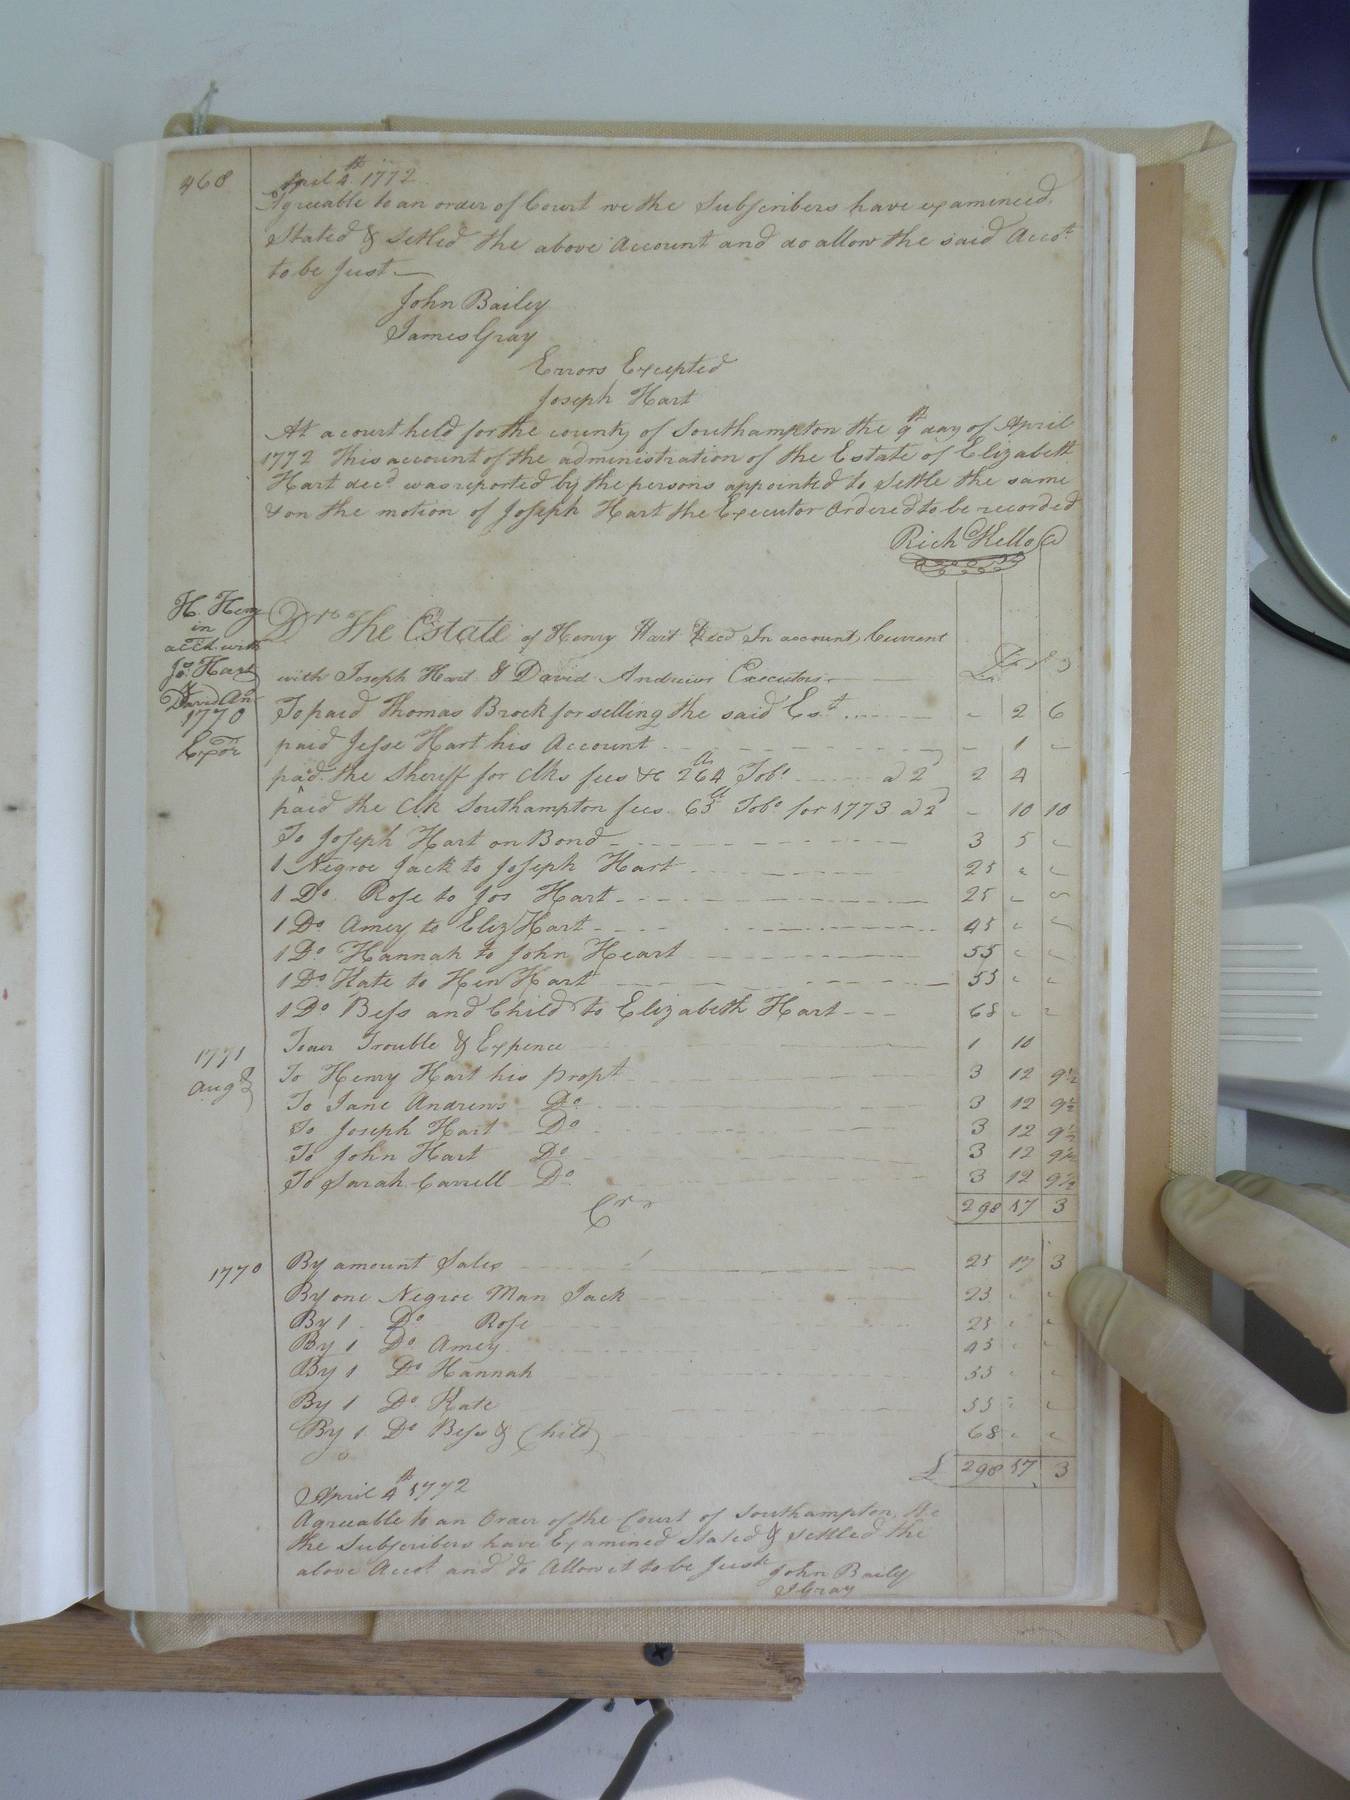 468
April 4th 1772
Agreeable to an order of Court we the Subscribers have examened,
Stated & Setled the above Account and do allow the said Accot.
to be Just
John Bailey
James Gray
Errors Excepted
Joseph Hart
At a court held for the county of Southampton the 9th day of April
1772 This account of the administration of the Estate of Elizabeth
Hart decd. was reported by the persons appointed to Settle the same
& on the motion of Joseph Hart the Executor Ordered to be recorded
Rich Kello
H. Henry
in
accd. with
Jo: Hart
&
David And
1770
Exor
Drs The Estate of Henry Hart Decd In account Current
with Joseph Hart & David Andrews Executors £ s
To paid Thomas Brock for selling the said Est. - 2 6
paid Jesse Hart his Account - 1 -
paid the Sheriff for Clks fees &c 264 Tobo. a 2d 2 4
paid the Clk Southampton fees 65 Tobo for 1773 a 2d - 10 10
To Joseph Hart on Bond 3 5 -
1 Negroe Jack to Joseph Hart 25 - -
1 Do. Rose to Jos Hart 25 - -
1 Do Amey to Eliz Hart 45 - -
1 Do Hannah to John Heart 55 - -
1 Do Kate to Hen Hart 55 - -
1 Do Bess and Child to Elizabeth Hart 68 - -
1771
Augt 2
To our Trouble & Expence 1 10
To Henry Hart his propt 3 12 9½
To Jane Andrews Do 3 12 9½
To Joseph Hart Do 3 12 9½
To John Hart Do 3 12 9½
To Sarah Carrell Do 3 12 9½
Crr 298 17 3
1770 By amount Sales 25 17 3
By one Negroe Man Jack 25 - -
By 1 Do Rose 25 - -
By 1 Do Amey 45 - -
By 1 Do Hannah 55 - -
By 1 Do Kate 55 - -
By 1 Do Bess & Child 68 - -
£ 298 17 3
April 4th 1772
Agreeable to an Order of the Court of Southampton We
the Subscribers have Examined Stated & Settled the
above Accot and do Allow it to be Just John Baily
J Gray